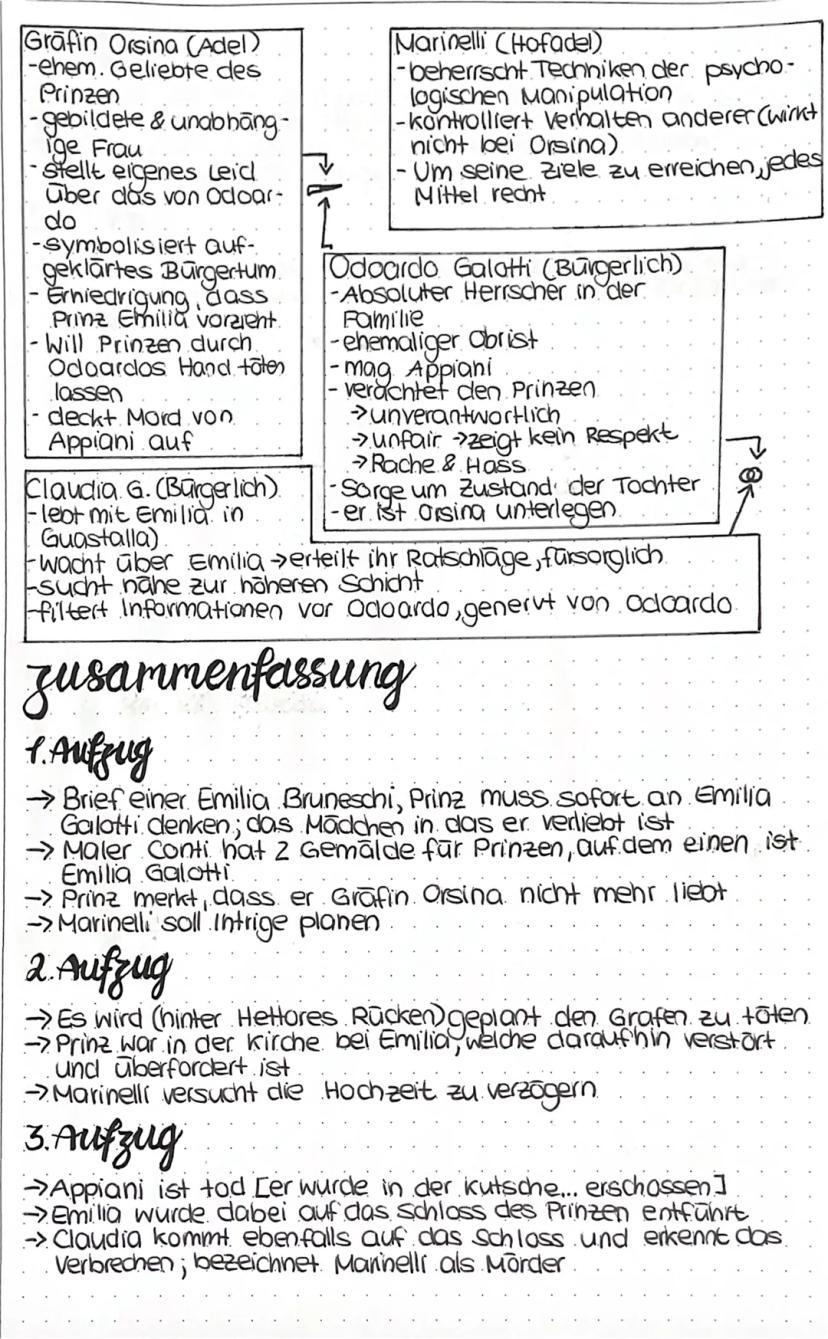 Gräfin Orsina (Adel)
-ehem. Geliebte des
Prinzen
-gebildete & unabhäng-
ige Frau
-stellt eigenes Leid
über das von Odoar-
do
-symbolisiert auf-
geklärtes Bürgertum
- Erniedrigung, dass
Prinz Emilia vorzieht
- Will Prinzen durch
Odoardos Hand töten
lassen
- deckt Mord von
Appiani auf
Marinelli (Hofadel)
-beherrscht Techniken der psycho-
logischen Manipulation
-kontrolliert Verhalten anderer (wirkt
nicht bei Orsina)
- Um seine Ziele zu erreichen, jedes
Mittel recht
Odoardo Galotti (Bürgerlich)
-Absoluter Herrscher in der
Familie
-ehemaliger Obrist
-mag Appiani
- verachtet den Prinzen
→unverantwortlich
→unfair →zeigt kein Respekt
→Rache & Hass
-Sorge um Zustand der Tochter
-er ist Orsina unterlegen
Claudia G. (Bürgerlich)
-lebt mit Emilia in
Guastalla)
-wacht über Emilia →erteilt ihr Ratschläge, fürsorglich
-sucht nähe zur höheren Schicht
-filtert Informationen vor Odoardo, genervt von Odoardo
Zusammenfassung
1. Aufzug
→ Brief einer Emilia Bruneschi, Prinz muss sofort an Emilia
Galotti denken; das Mädchen in das er verliebt ist
→ Maler Conti hat 2 Gemälde für Prinzen, auf dem einen ist
Emilia Galotti
→ Prinz merkt, dass er Gräfin Orsina nicht mehr liebt
→ Marinelli soll Intrige planen
2. Aufzug
→ Es wird (hinter Hettores Rücken) geplant den Grafen zu töten
→ Prinz war in der Kirche bei Emilia, welche daraufhin verstört
und überfordert ist
→ Marinelli versucht die Hochzeit zu verzögern
3. Aufzug
→Appiani ist tod [er wurde in der Kutsche... erschossen]
→Emilia wurde dabei auf das Schloss des Prinzen entführt
→ Claudia kommt ebenfalls auf das Schloss und erkennt das
Verbrechen; bezeichnet Marinelli als Mörder